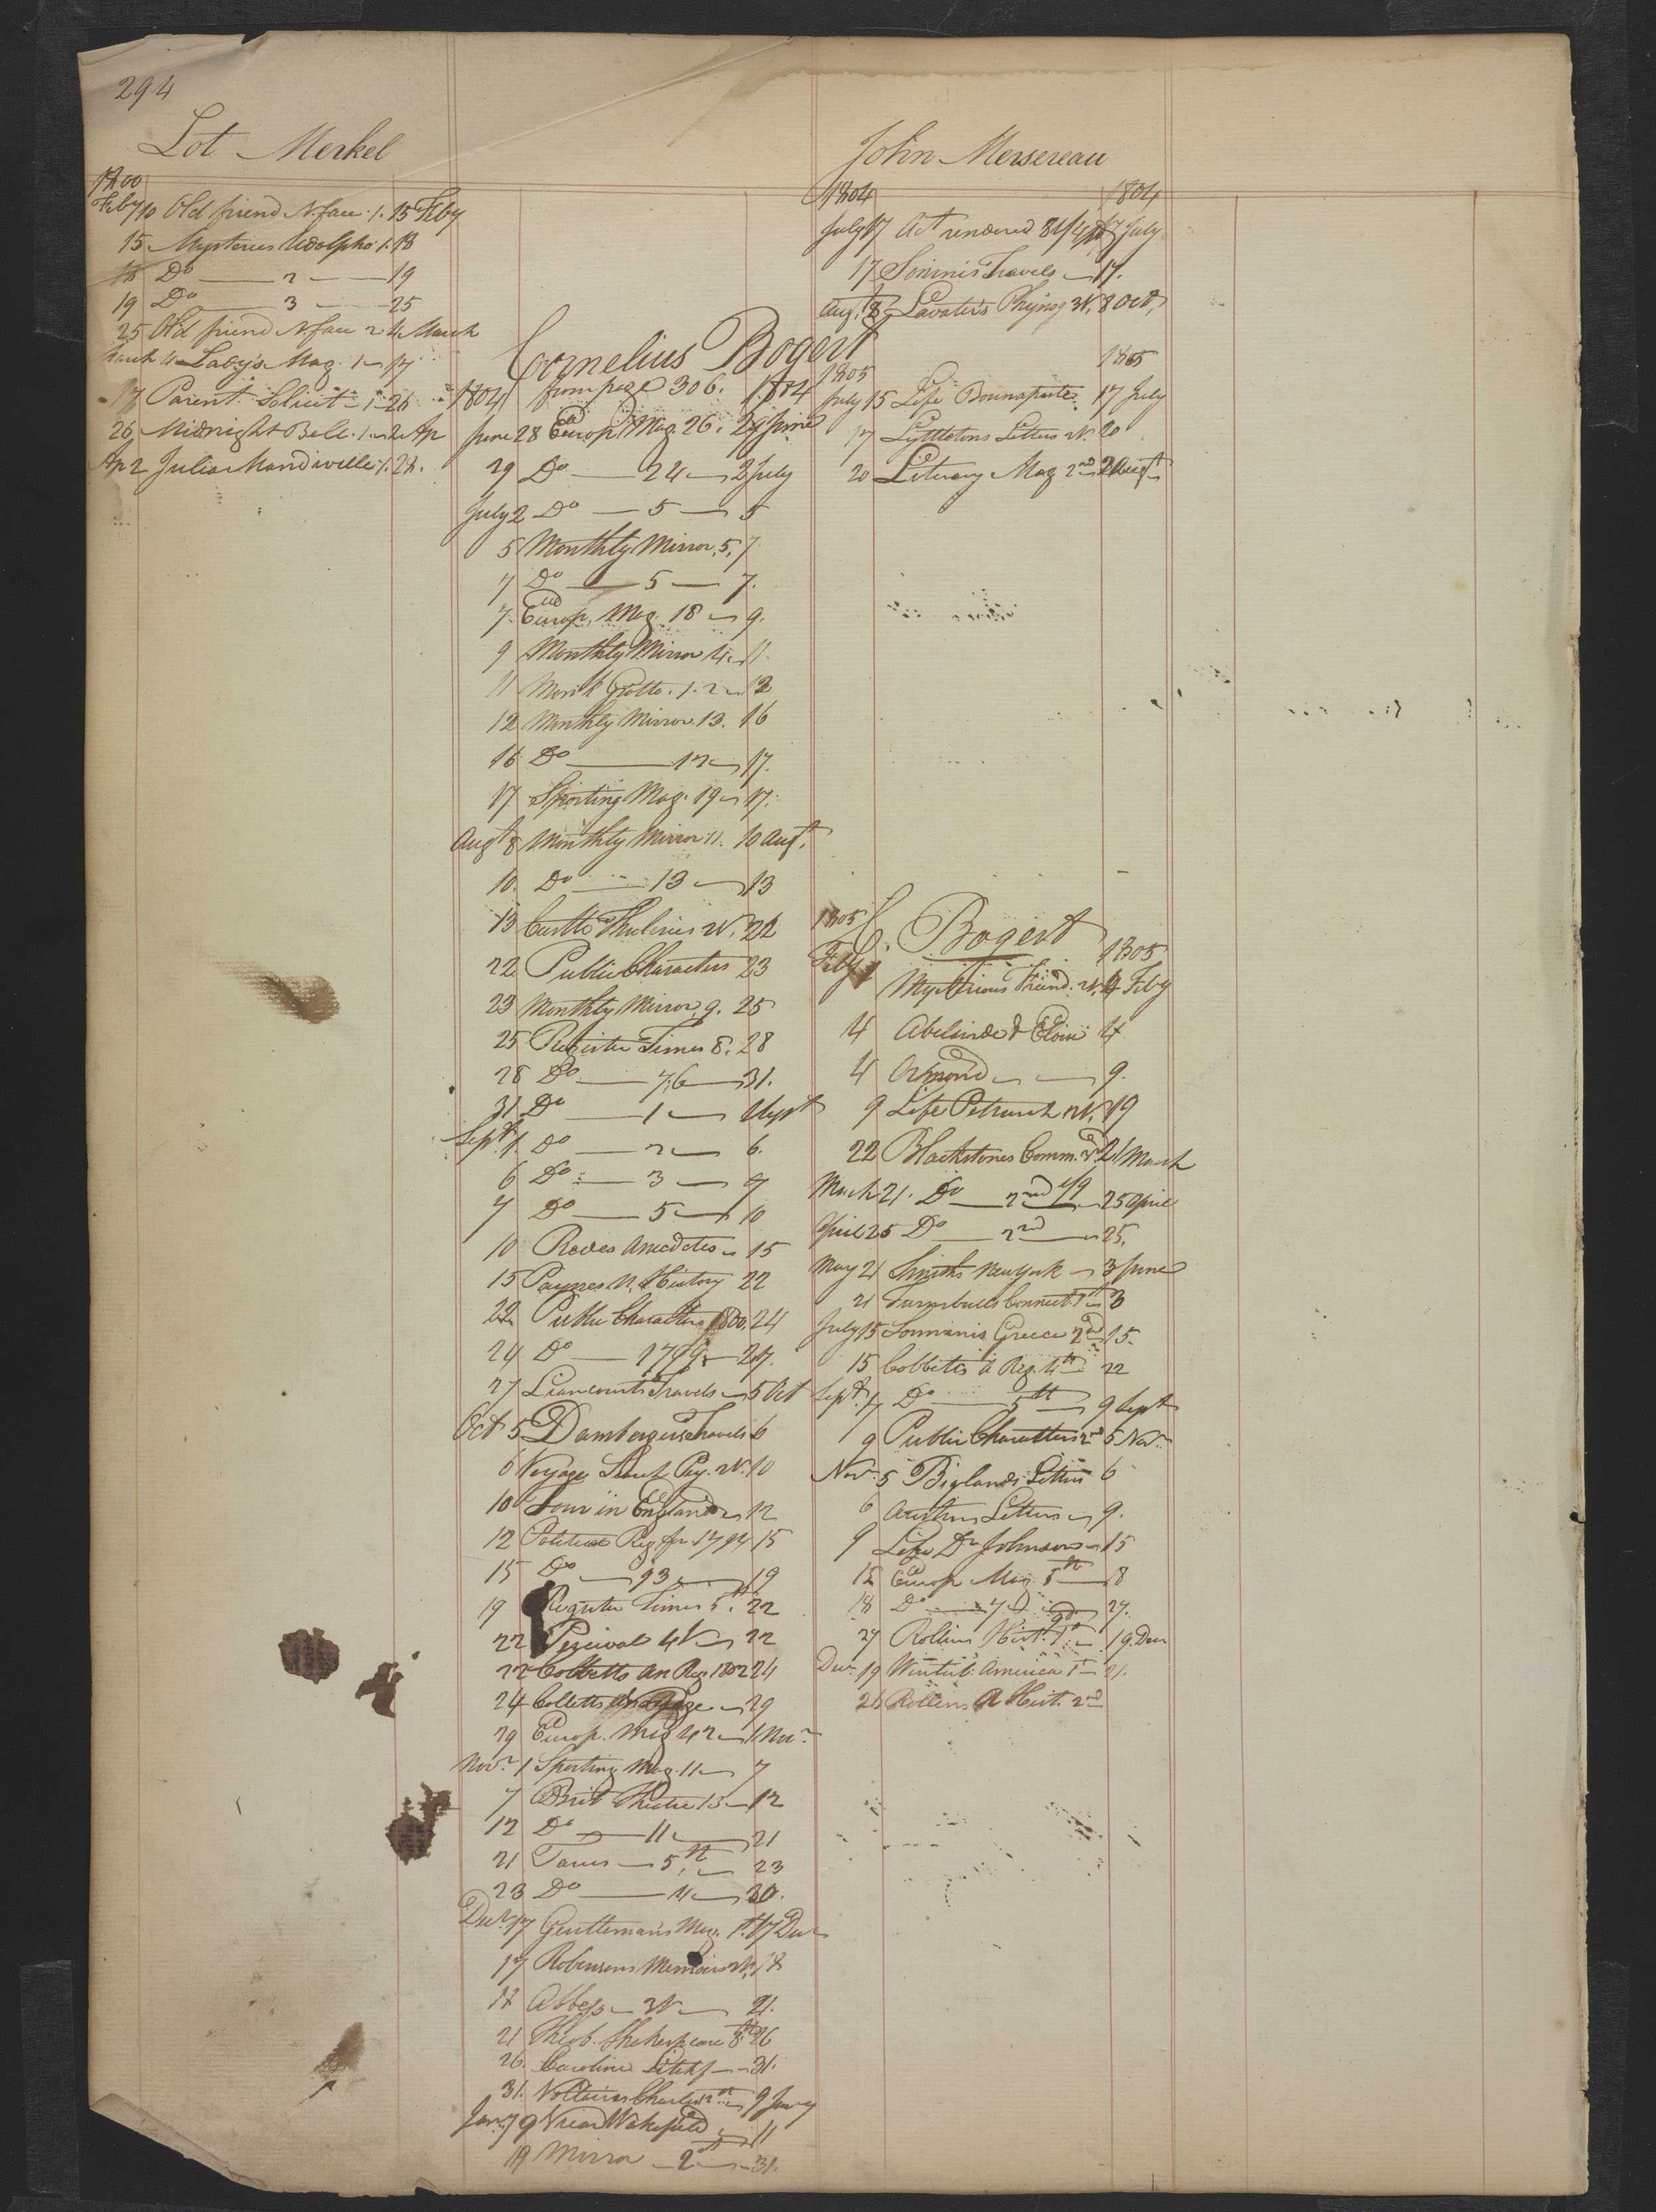 294
Lot Merkel
1800
Feby 10 Old friend N. face . 1 . 15 Feby
15 Mysteries Udolpho 1. 18
18 Do — 2 — 19
19 Do — 3 — 25
25 Old friend N. face 2 4 March
March 4 Lady's Mag. 1 — 17
17 Parent Solicit — 1 — 26
26 Midnight Bell . 1 — 2 Ap
Ap 2 Julia Mandiville 1. 28.
Cornelius Bogert
1804 from page 306. 1804
June 28 Europ. Mag. 26. 29 June
29 Do — 24 — 2 July
July 2 Do — 5 — 5
5 Monthly Mirror, 5, 7
7 Do — 5 — 7.
7. Europ. Mag. 18 — 9.
9 Monthly Mirror 4 — 11.
11 Grotto . 1 . 2 — 12
12 Monthly Mirror 13. 16
16 Do — 12 — 17.
17 Sporting Mag. 19 — 17.
Augt 8 Monthly Mirror 11. 10 Augt.
10. Do — 13 — 13
13 2V. 22
22 Public Characters 23
23 Monthly Mirror, 9. 25
25 Register Times 8. 28
28 Do — 7.6 — 31.
31 Do — 1 — 1 Sept
Sept. 1. Do — 2 — 6.
6 Do — 3 — 7
7 Do — 5 — 10
10 Anecdotes — 15
15 Paynes N. History 22
22 Public Characters 1800. 24
24 Do — 1799 — 27.
27 Liancourts Travels — 5 Oct
Oct 5 Dambergers Travels 6
6 Voyage 2V. 10
10 Tour in England — 12
12 Political Reg. for 1794 15
15 Do — 93 — 19
19 Register Times 5th. 22
22 Percival 4V — 22
22 Cobbetts An Reg. 1802 24
24 29
29 Europ. Mag 42 — 1 Novr.
Novr. 1 Sporting Mag. 11 — 7
7 Brit Theatre 13 — 12
12 Do — 11 — 21
21 — 5th. — 23
23 Do — 4 — 30.
Decr 17 Gentleman's Mag. 1st. 17 Decr
17 Robinsons Memoirs 2V. 18
18 Abbess — 3V — 21.
21 Theob. Shakespeare 8th 26
26. Caroline Litchf — 31.
31. Voltaires 9 Jany
Jany 9 Vicar Wakefield — 11
19 Mirror — 2nd — 31.
John Mersereau
1804 1804
July 17 Act rendered 17 July
17 Sonini's Travels — 17.
Augt. 8 Lavaters Physiog 3V. 8 Octr.
1805 1805
July 15 Life Bounaparte. 17 July
17 Lyttletons Letters 2V. 20
20 Literary Mag 2nd 2 Augt
1805 C. Bogert 1805
Feby 1 Mysterious Friend. 2V. 4 Feby
4 Abelard & Eloisi 4
4 Ormond — 9.
9 Life Petrarch 2V. 19
22 Blackstones Comm. 21 March
March 21. Do — 2nd — 25 April
April 25 Do — 2nd — 25.
May 21 Smiths New York — 3 June
21 Turnbulls Connect. 1st — 3
July 15 Sonninis Greece 2nd 15.
15 Cobbetts A Reg. 4th 22
Sept. 7 Do — 5th — 9 Sept
9 Public Characters 2nd 5 Novr.
Novr. 5 Biglands Letters 6
6 Letters — 9.
9 Life Dr Johnson — 15
15 Europ Mag. 5th — 18
18 Do 27.
27 Rollins Hist. 1st — 19 Decr
Decr. 19 Winterb. America 1st — 21.
21 Rollins A Hist. 2nd